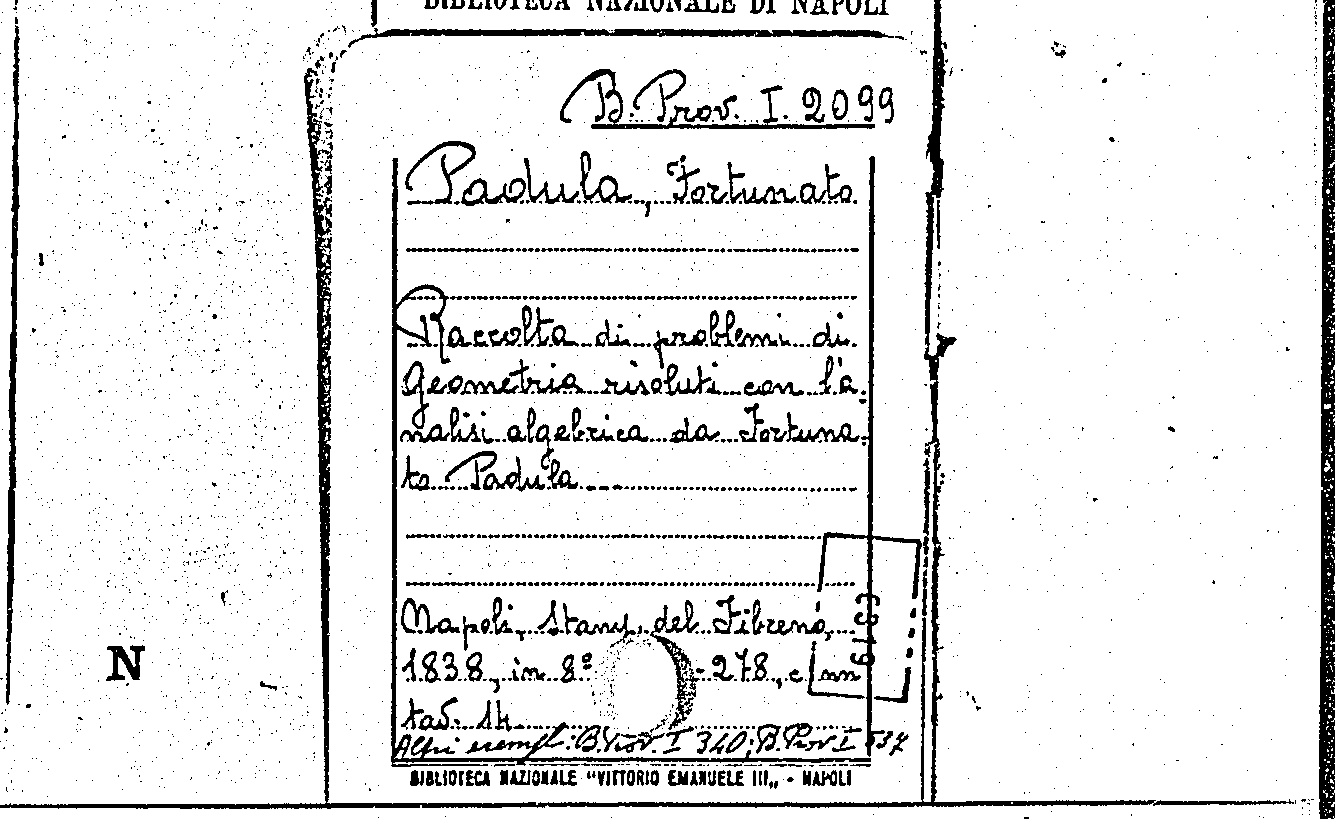 BIBLIOTECA NAZIONALE DI NAPOLI
B. Prov. I. 2099
Padula, Fortunato
Raccolta di problemi di
Geometria risoluti con l'a=
nalisi algebrica da Fortuna=
to Padula...
Napoli, Stamp. del Fibreno,
1838, in 8º -278, c
tav. 14
Altri esempl.: B. Prov. I 340; B. Prov I
N
BIBLIOTECA NAZIONALE "VITTORIO EMANUELE III„ - NAPOLI